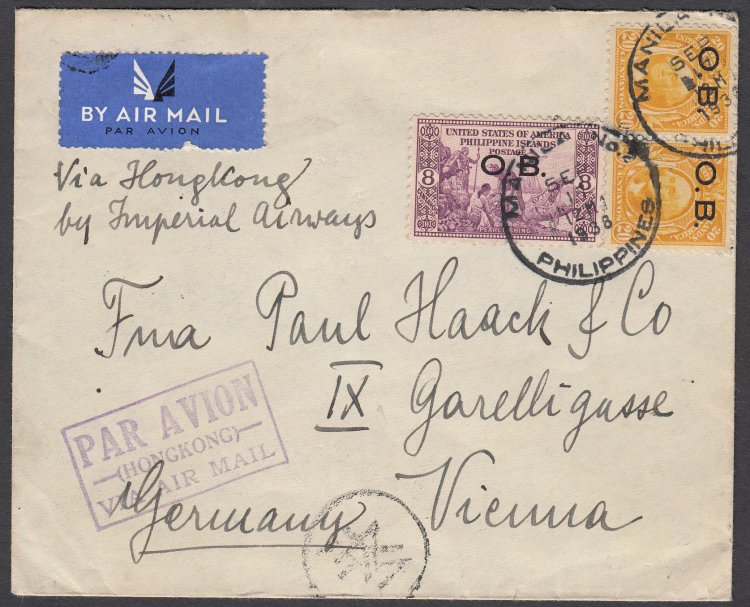 BY AIR MAIL
PAR AVION
Via Hongkong
by Imperial Airways
UNITED STATES OF AMERICA
PHILIPPINE ISLANDS
POSTAGE
8 8
PEARL FISHING
O.B.
O.B.
O.B.
20
20
MANILA
SEP
1938
PHILIPPINES
Fma Paul Haack & Co
IX Garelligasse
Vienna
Germany
PAR AVION
(HONGKONG)
VIA AIR MAIL